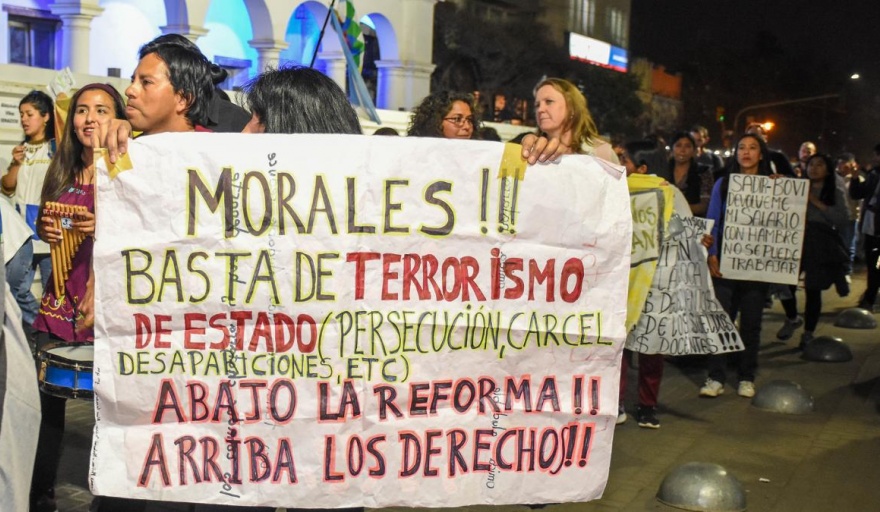 MORALES!!!
BASTA DE TERRORISMO
DE ESTADO (PERSECUCIÓN, CARCEL
DESAPARICIONES, ETC)
ABAJO LA REFORMA!!
ARRIBA LOS DERECHOS!!
SADIR-BOVI
DEVOLVEME
MI SALARIO
CON HAMBRE
NO SE PUEDE
TRABAJAR
DE LOS SUELDOS
DOCENTES!!!